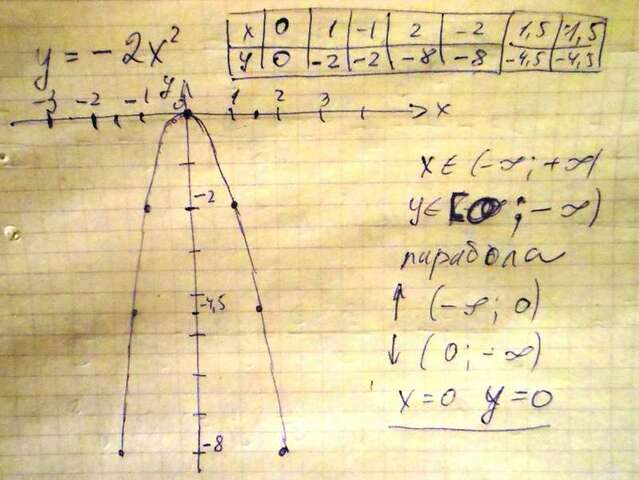 y = - 2x²
x 0 1 -1 2 -2 1,5 -1,5
y 0 -2 -2 -8 -8 -4,5 -4,5
y
-3 -2 -1 0 1 2 3 x
-2
-4,5
-8
x ∈ (-∞; +∞)
y ∈ [0; -∞)
парабола
↑ (-∞; 0)
↓ (0; -∞)
x=0 y=0